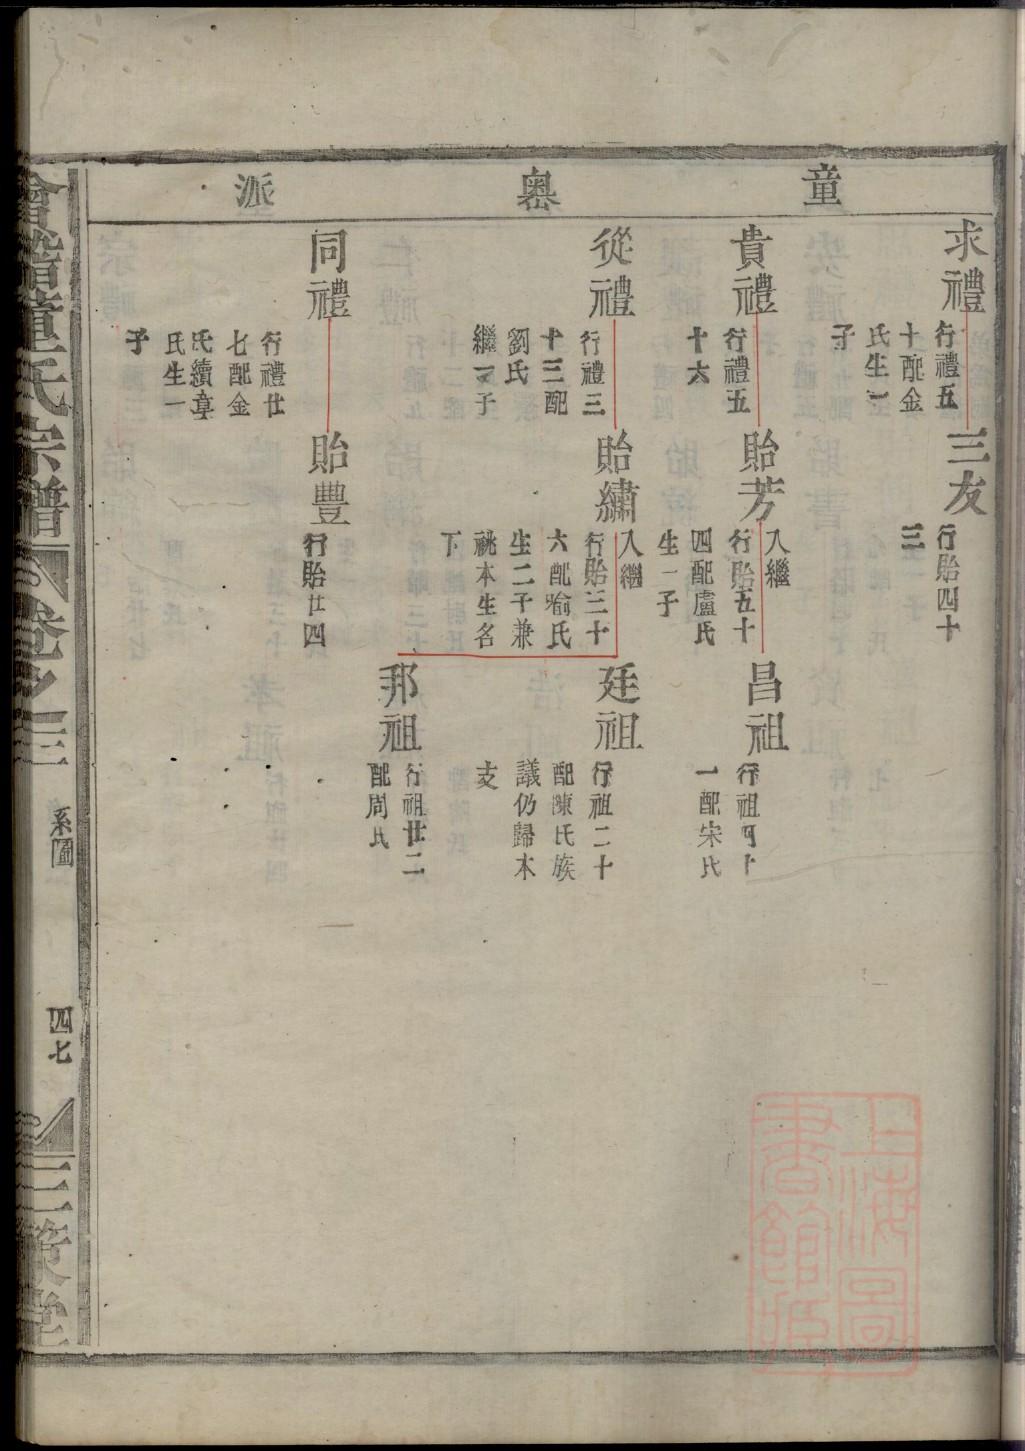 童 粵 派
求禮
行禮五
十配金
氏生一
子
三友
行貽四十
三
貴禮
行禮五
十六
貽芳
入繼
行貽五十
四配盧氏
生一子
昌祖
行祖四十
一配宋氏
從禮
行禮三
十三配
劉氏
繼一子
貽繡
入繼
行貽三十
六配喻氏
生二子兼
祧本生名
下
廷祖
行祖二十
配陳氏族
議仍歸本
支
邦祖
行祖廿二
配周氏
同禮
行禮廿
七配金
氏續章
氏生一
子
貽豐
行貽廿四
會稽童氏宗譜
卷之三
系圖
四七
三策堂
上海圖
書館藏